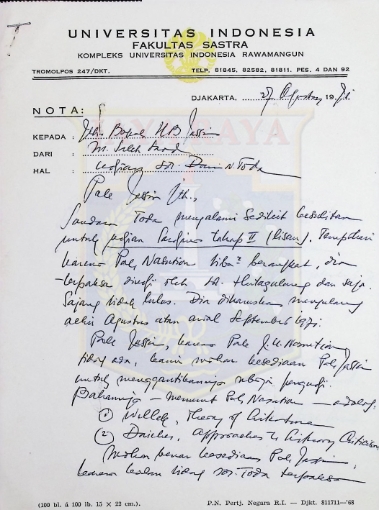 UNIVERSITAS INDONESIA
FAKULTAS SASTRA
KOMPLEKS UNIVERSITAS INDONESIA RAWAMANGUN
TROMOLPOS 247/DKT. TELP. 81845, 82582, 81811. PES. 4 DAN 92
DJAKARTA, 27 Agustus 1971
NOTA:
KEPADA : Yth. Bapak H.B. Jassin
DARI : M. Saleh
HAL :
Pak Jassin Yth.,
Saudara Toda mengalami sedikit kesulitan
untuk udjian Sardjana tahap II (lisan). Tempohari
karena Pak Nasution tiba² berangkat, dia
terpaksa diudji oleh Sdr. Hutagalung dan saja.
Sajang tidak lulus. Dia diharuskan mengulang
achir Agustus atau awal September 1971.
Pak Jassin, karena Pak J.U. Nasution
tidak ada, kami mohon kesediaan Pak Jassin
untuk menggantikannja sebagai pengudji.
Bahannja — menurut Pak Nasution — adalah:
① Wellek, Theory of Literature
② Daiches, Approaches to Literary Criticism
Mohon benar kesediaan Pak Jassin,
karena kalau tidak sdr. Toda terpaksa
(100 bl. á 100 lb. 15 x 22 cm.) P.N. Pertj. Negara R.I. — Djkt. 811711—'68